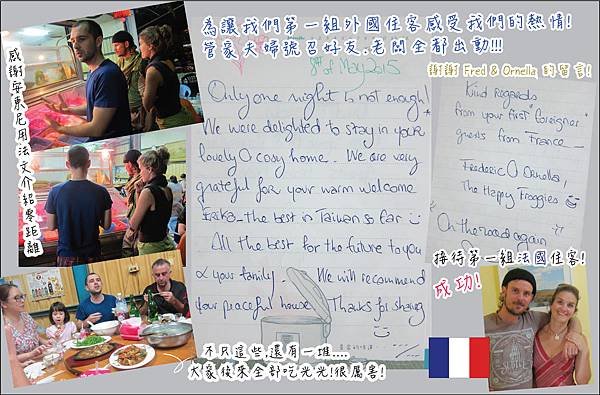 為讓我們第一組外國住客感受我們的熱情!
管豪夫婦號召好友.老闆全都出動!!!
感謝安東尼用法文介紹零距離
謝謝 Fred & Ornella 的留言!
8th of May 2015
Only one night is not enough!
We were delighted to stay in your
lovely & cosy home. We are very
grateful for your warm welcome
Erika - the best in Taiwan so far
All the best for the future to you
& your family. We will recommend
your peaceful house. Thanks for sharing
Kind Regards
from your first "foreigner"
guests from France -
Frederic & Ornella,
The Happy Froggies
On the road again
接待第一組法國住客!
成功!
不只這些,還有一堆....
大家後來全部吃光光!很厲害!